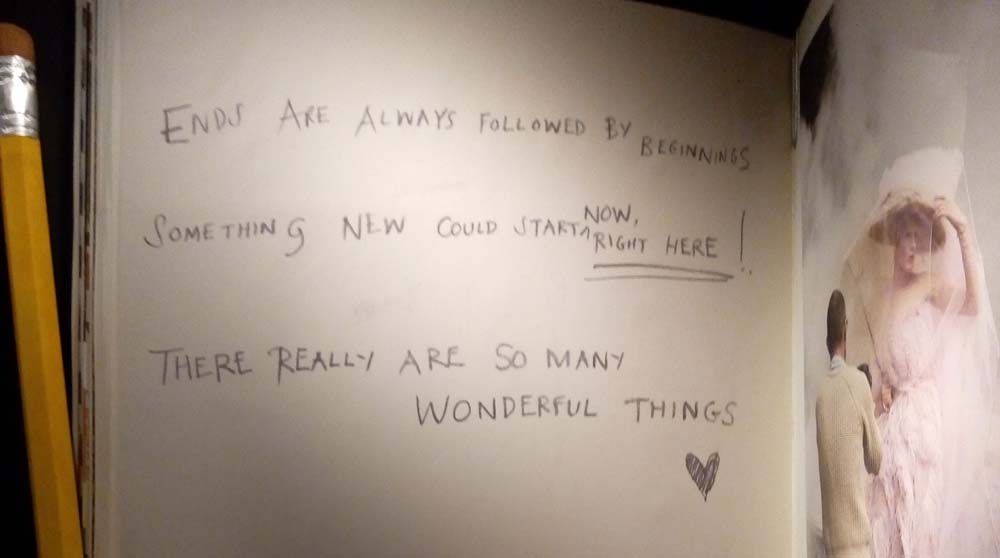 ENDS ARE ALWAYS FOLLOWED BY BEGINNINGS
SOMETHING NEW COULD START NOW, RIGHT HERE!
THERE REALLY ARE SO MANY
WONDERFUL THINGS